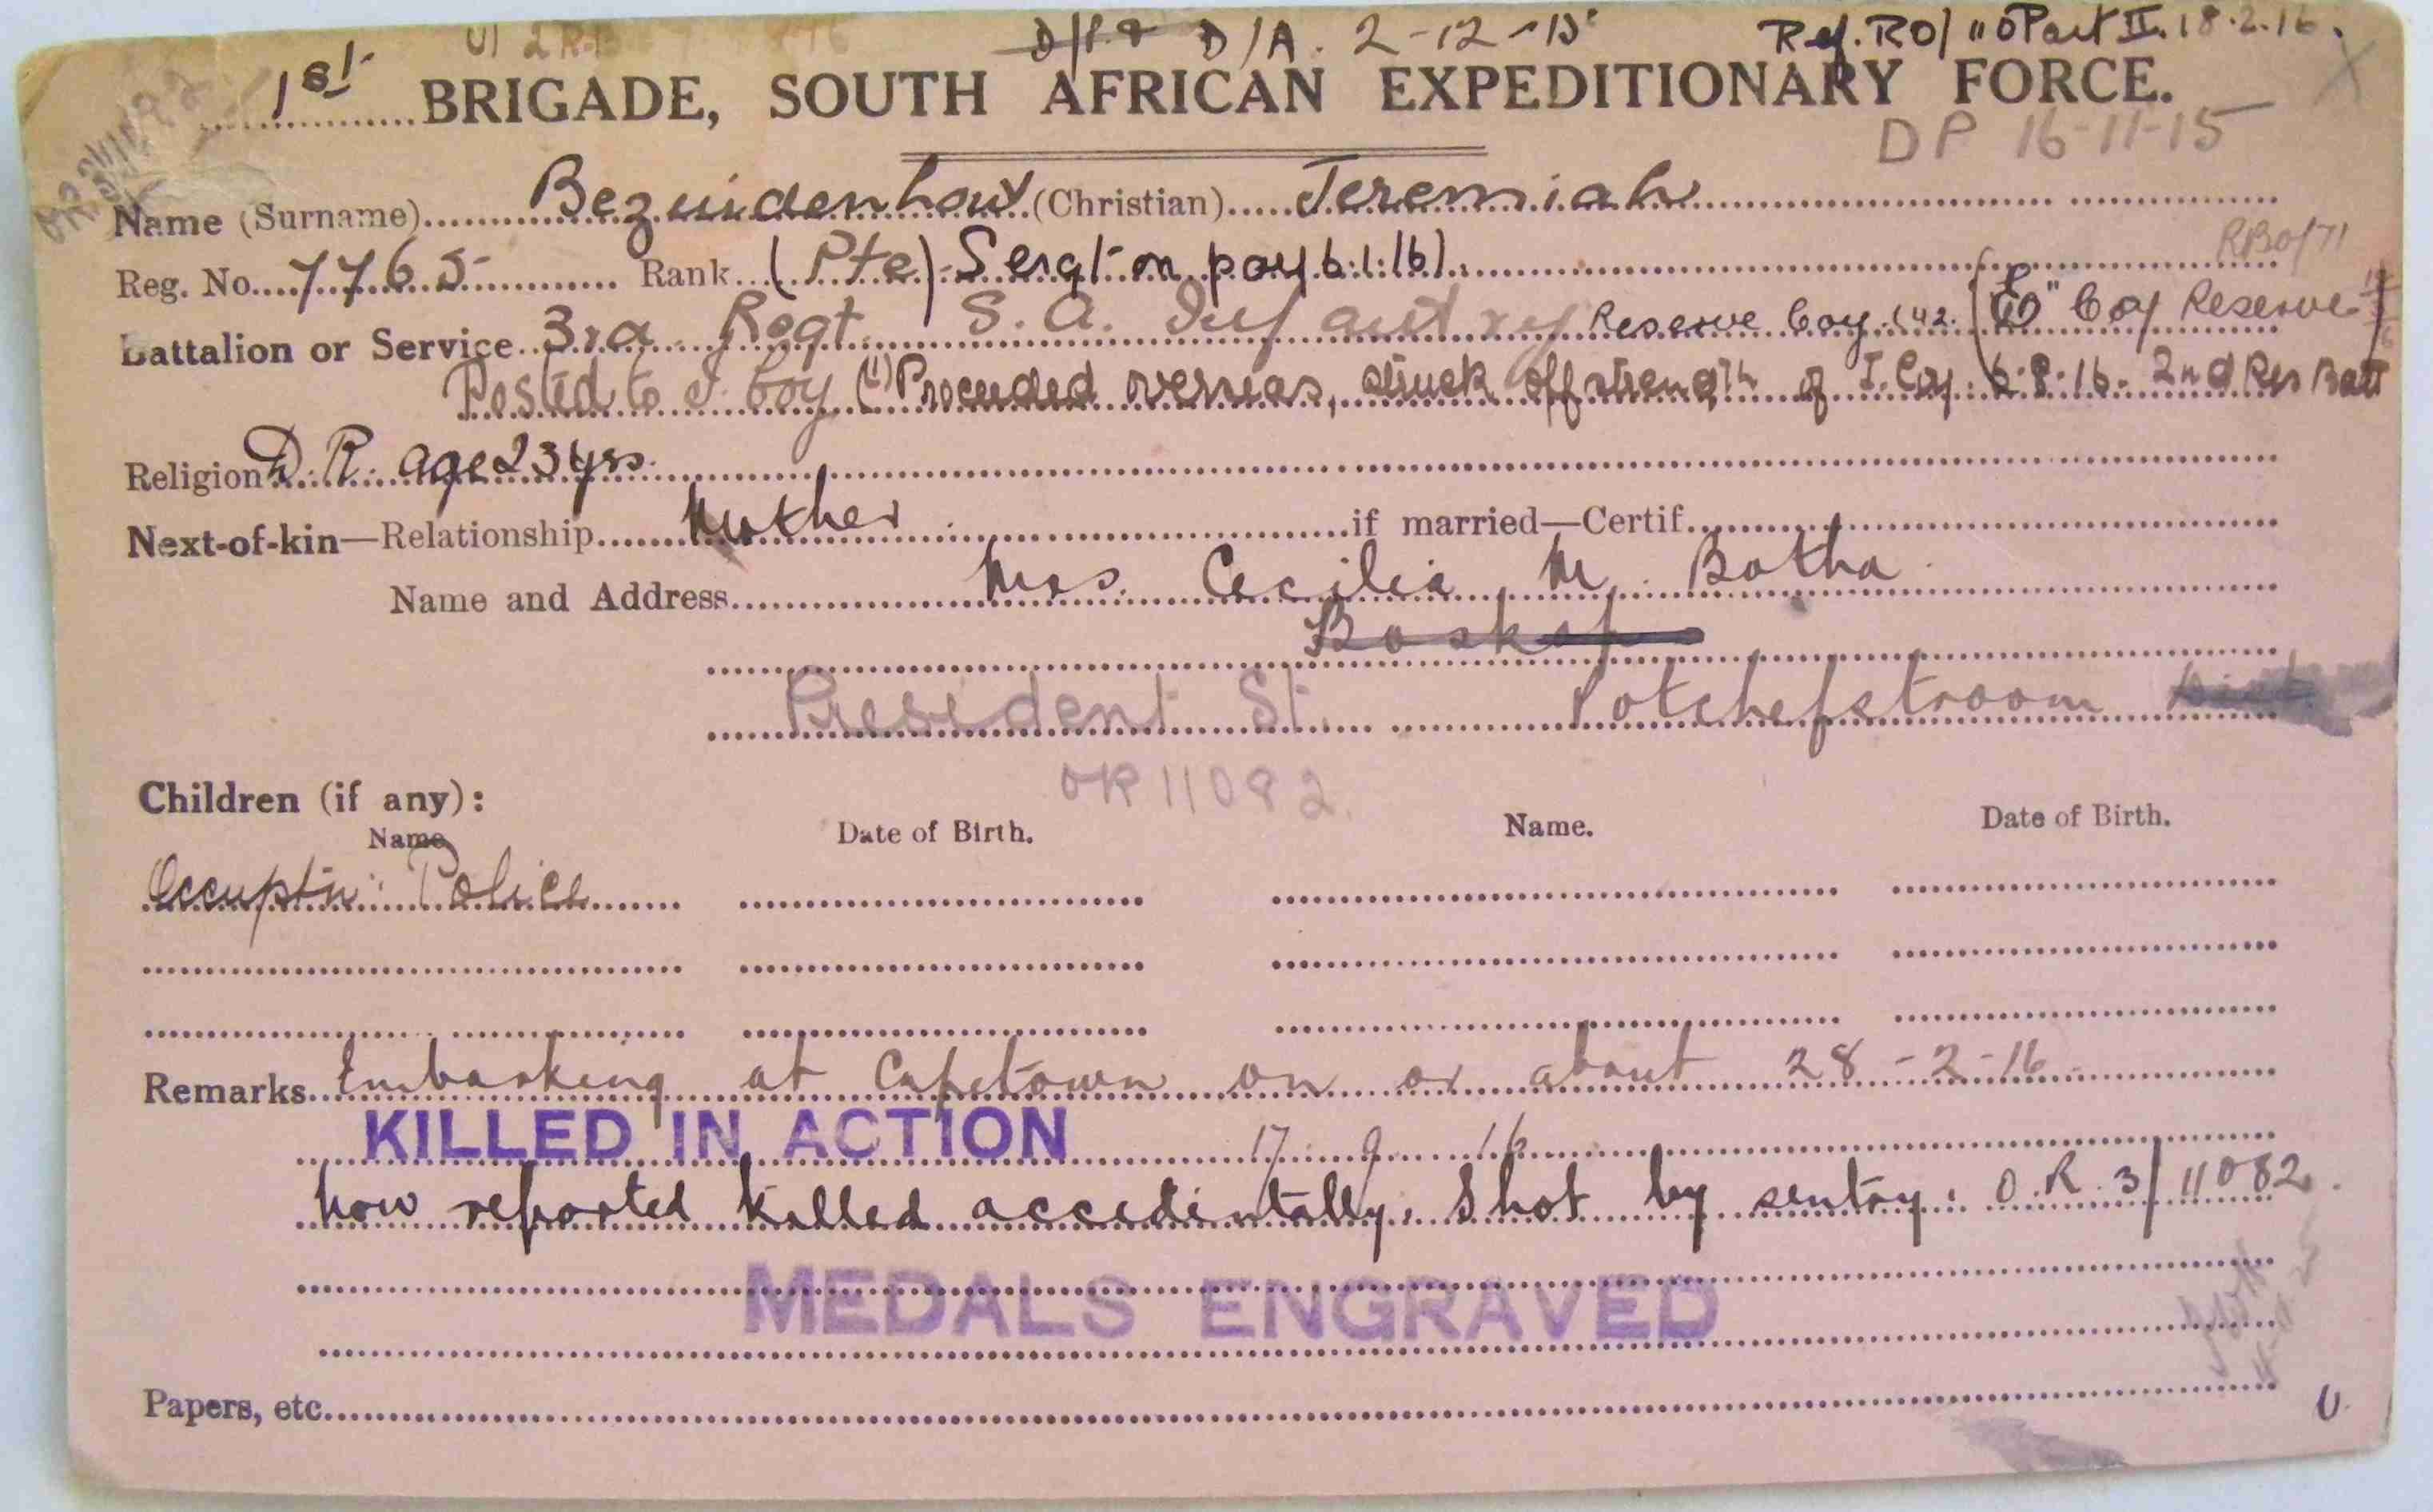 D/A. 2-12-15 Ref. RO/110 Part II. 18.2.16.
1st BRIGADE, SOUTH AFRICAN EXPEDITIONARY FORCE.
DP 16-11-15
Name (Surname) Bezuidenhout (Christian) Jeremiah
Reg. No. 7765 Rank (Pte) Sergt on pay 6.1.16)
Battalion or Service 3rd Regt. S.A. Infantry Reserve Coy. Coy Reserve
Posted to I Coy (1) Proceeded overseas, struck off strength of I. Coy. 6.8.16. 2nd Res Batt
Religion D.R. age 23 yrs.
Next-of-kin—Relationship Mother if married—Certif.
Name and Address Mrs. Cecilia M. Botha
Boskop
President St. Potchefstroom Dist
OR 11082.
Children (if any):
Name Date of Birth. Name. Date of Birth.
Occuptn: Police
Remarks Embarking at Capetown on or about 28-2-16
KILLED IN ACTION 17. 9. 16
now reported killed accidentally. Shot by sentry. O.R. 3/11082.
MEDALS ENGRAVED
Papers, etc.